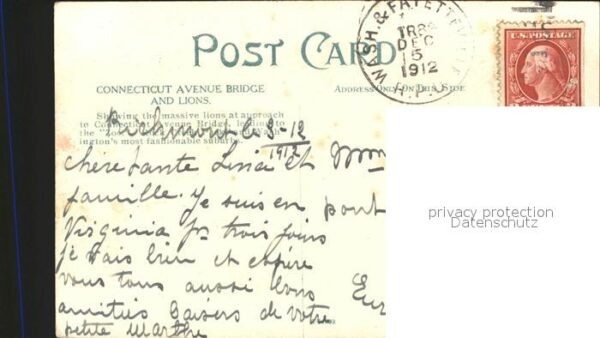 POST CARD
WASH. & FAYETTEVILLE
TR82
DEC
5
1912
R.P.O.
U.S. POSTAGE
CONNECTICUT AVENUE BRIDGE
AND LIONS.
ADDRESS ONLY ON THIS SIDE
Showing the massive lions at approach
to Connecticut Avenue Bridge, leading to
the "Zoo"
ington's most fashionable suburb.
Richmond le 3-12
1912
chère tante Lina et
famille. Je suis en
Virginia pr trois jours
je vais bien et espère
vous tous aussi bons
amitiés baisers de votre
petite Marthe
Mm
pont
Eur
privacy protection
Datenschutz